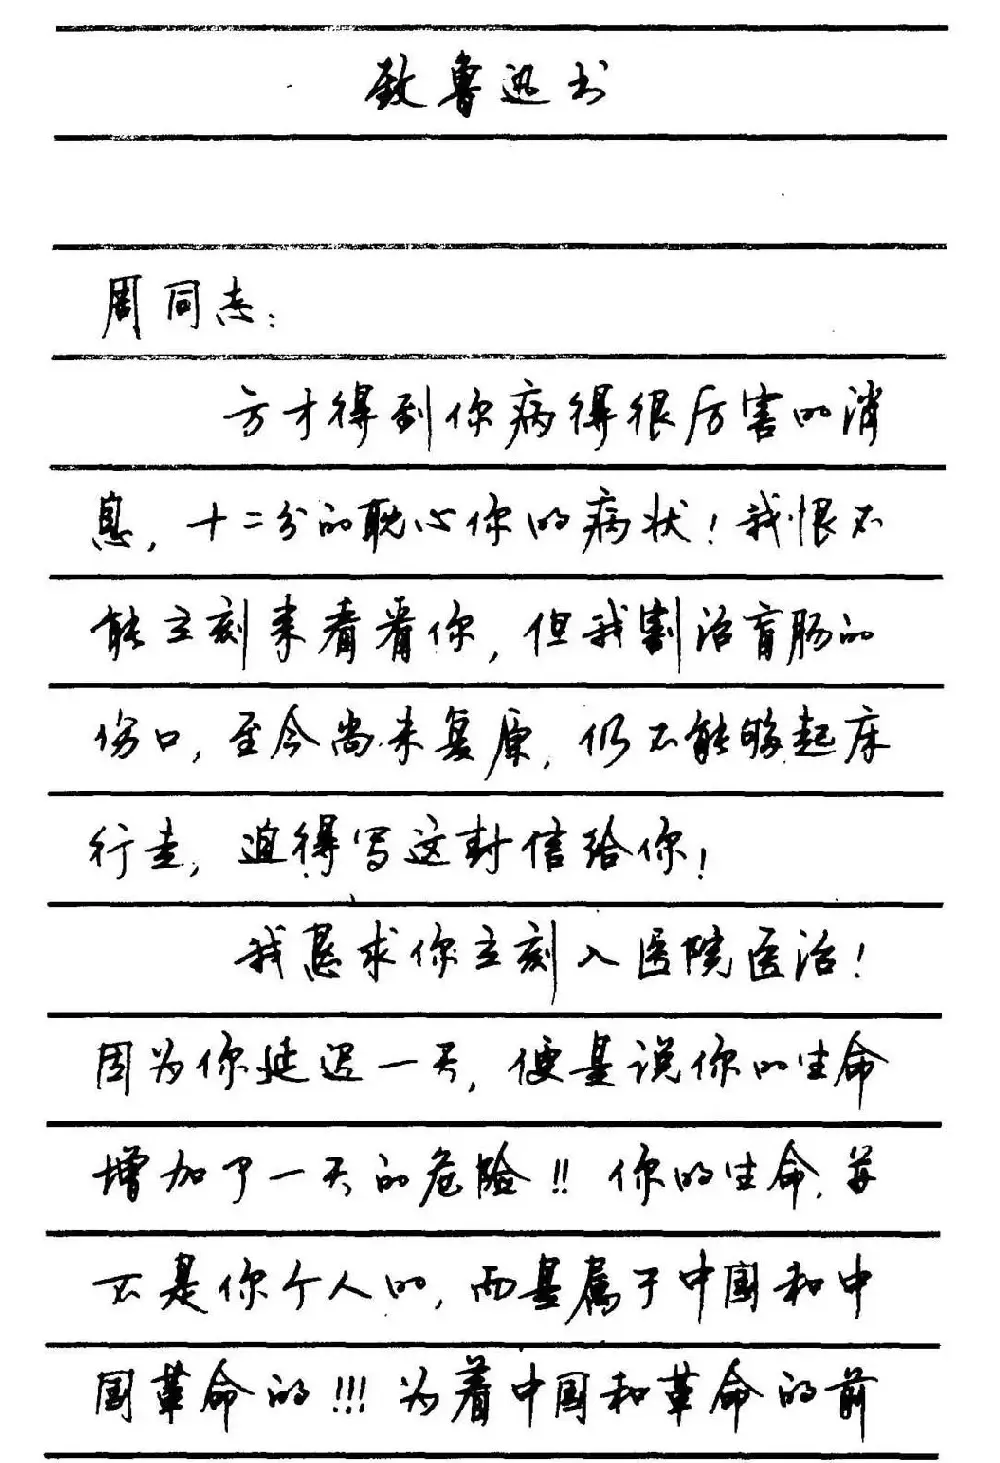 致鲁迅书
周同志：
方才得到你病得很厉害的消
息，十二分的耽心你的病状！我恨不
能立刻来看看你，但我割治盲肠的
伤口，至今尚未复原，仍不能够起床
行走，迫得写这封信给你！
我恳求你立刻入医院医治！
因为你延迟一天，便是说你的生命
增加了一天的危险！！你的生命，并
不是你个人的，而是属于中国和中
国革命的！！！为着中国和革命的前